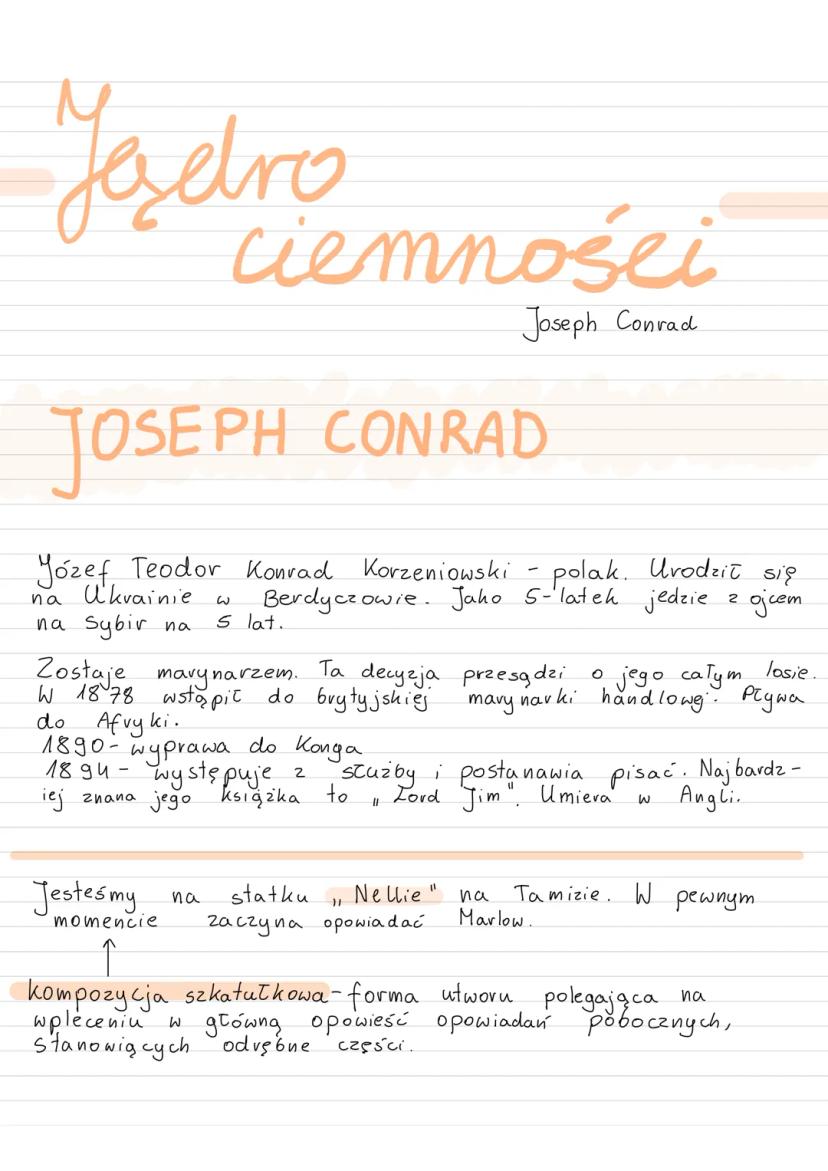 Jądro
ciemności
Joseph Conrad
JOSEPH CONRAD
Józef Teodor Konrad Korzeniowski - polak. Urodził się
na Ukrainie w Berdyczowie. Jako 5-latek jedzie z ojcem
na Sybir na 5 lat.
Zostaje marynarzem. Ta decyzja przesądzi o jego całym losie.
W 1878 wstąpił do brytyjskiej marynarki handlowej. Pływa
do Afryki.
1890- wyprawa do Konga
1894 - występuje z służby i postanawia pisać. Najbardz-
iej znana jego książka to „Lord Jim". Umiera w Angli.
Jesteśmy na statku „Nellie" na Tamizie. W pewnym
momencie zaczyna opowiadać Marlow.
kompozycja szkatułkowa - forma utworu polegająca na
wpleceniu w główną opowieść opowiadań pobocznych,
stanowiących odrębne części.